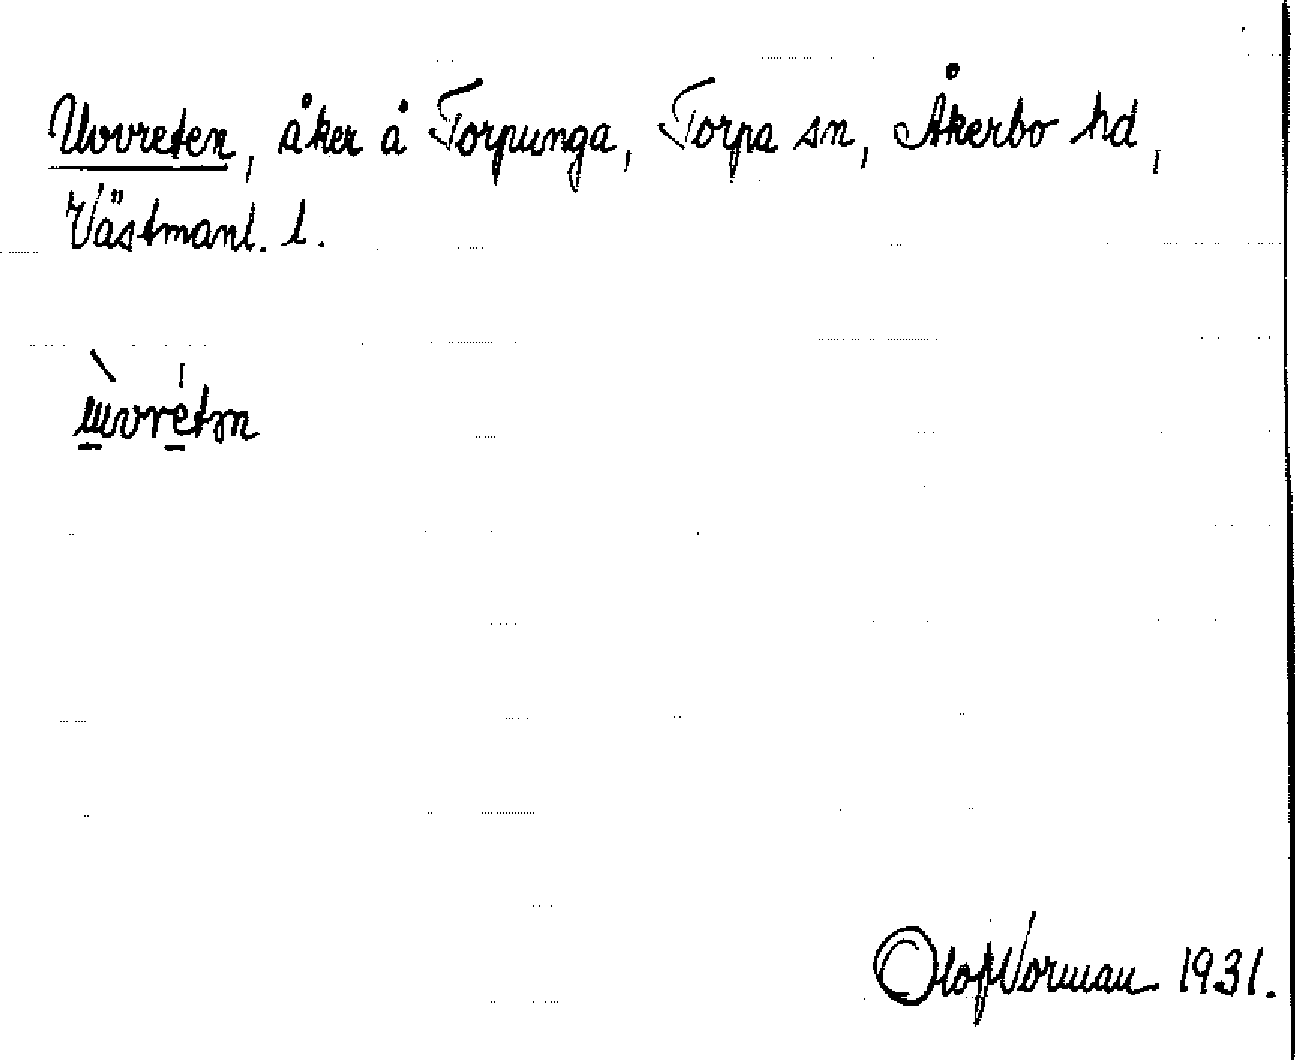 Uvvreten, åker å Torpunga, Torpa sn, Åkerbo hd,
Västmanl. l.
Olof Norman 1931.